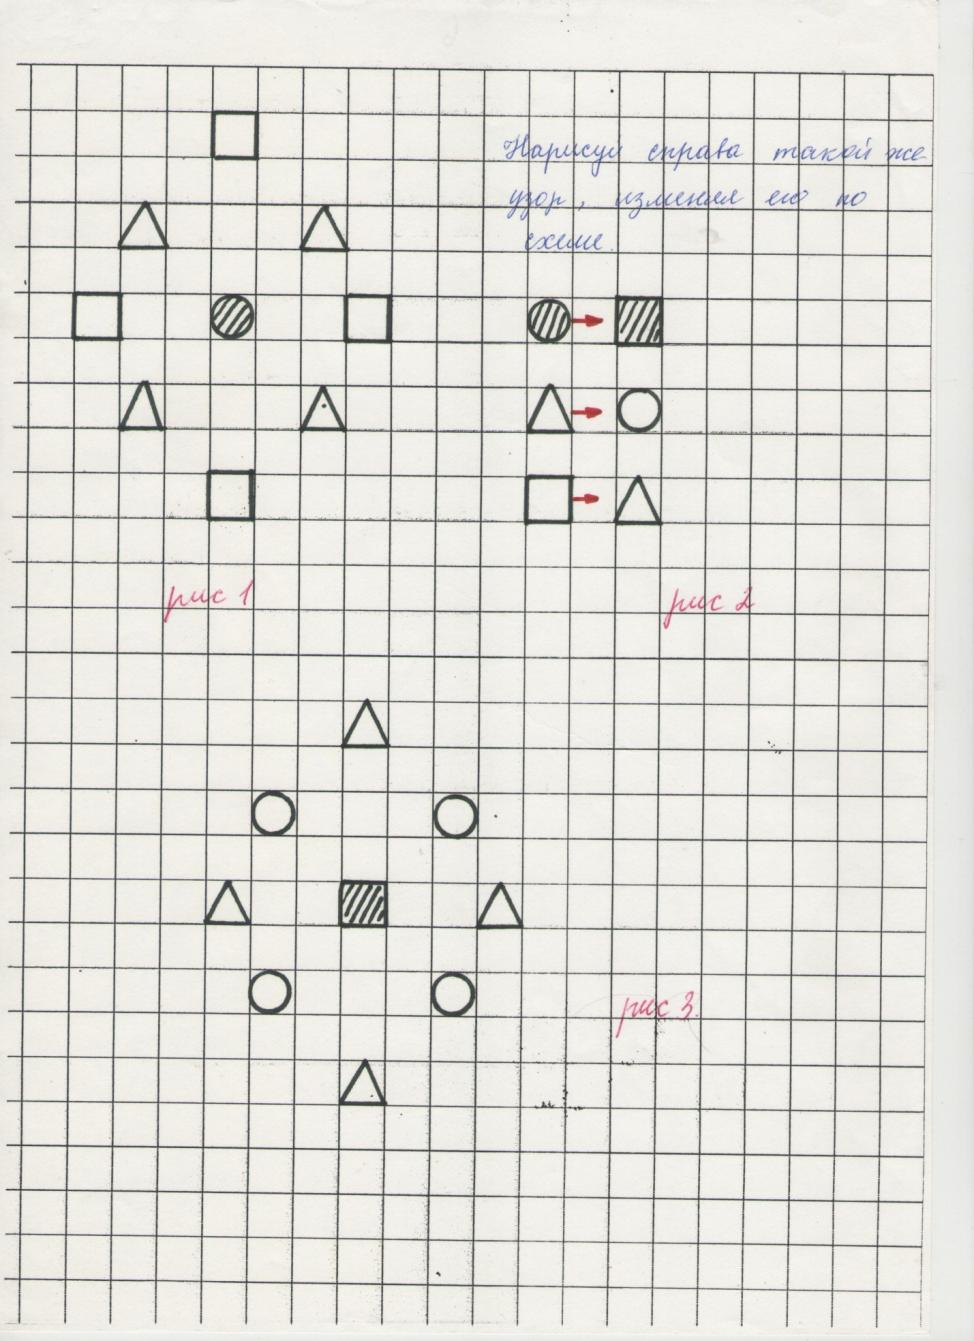 Нарисуй справа такой же
узор, изменяя его по
схеме.
рис 1
рис 2
рис 3.